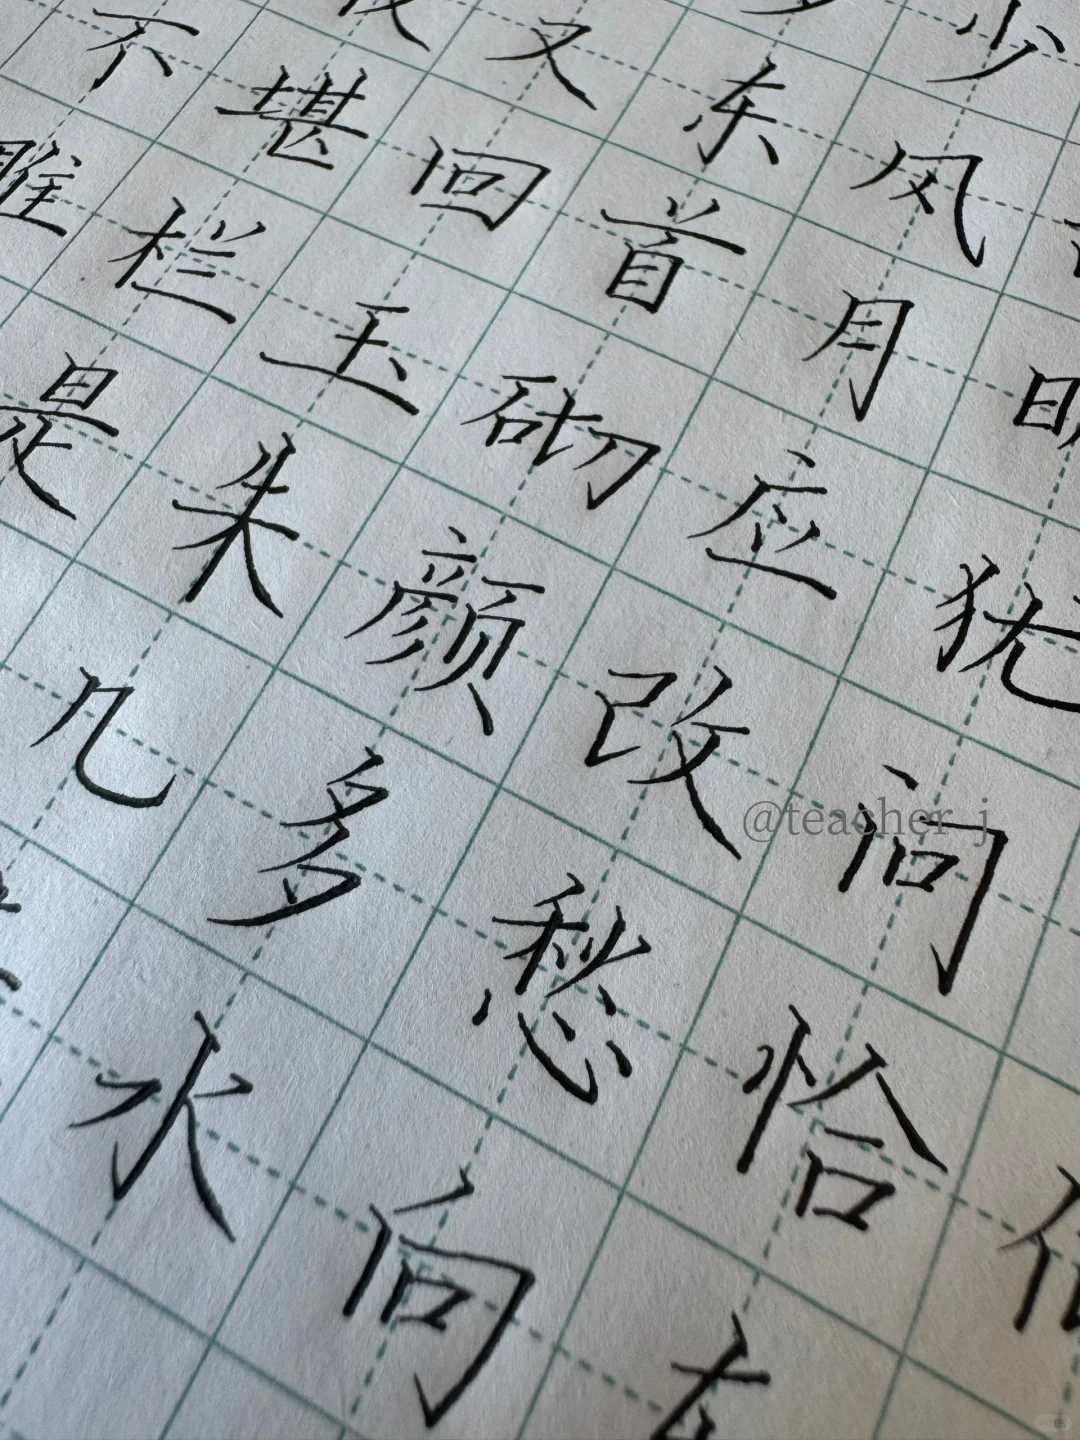 少
又东风
不堪回首月明
雕栏玉砌应犹
是朱颜改问
几多愁恰似
水向东
@teacher_j